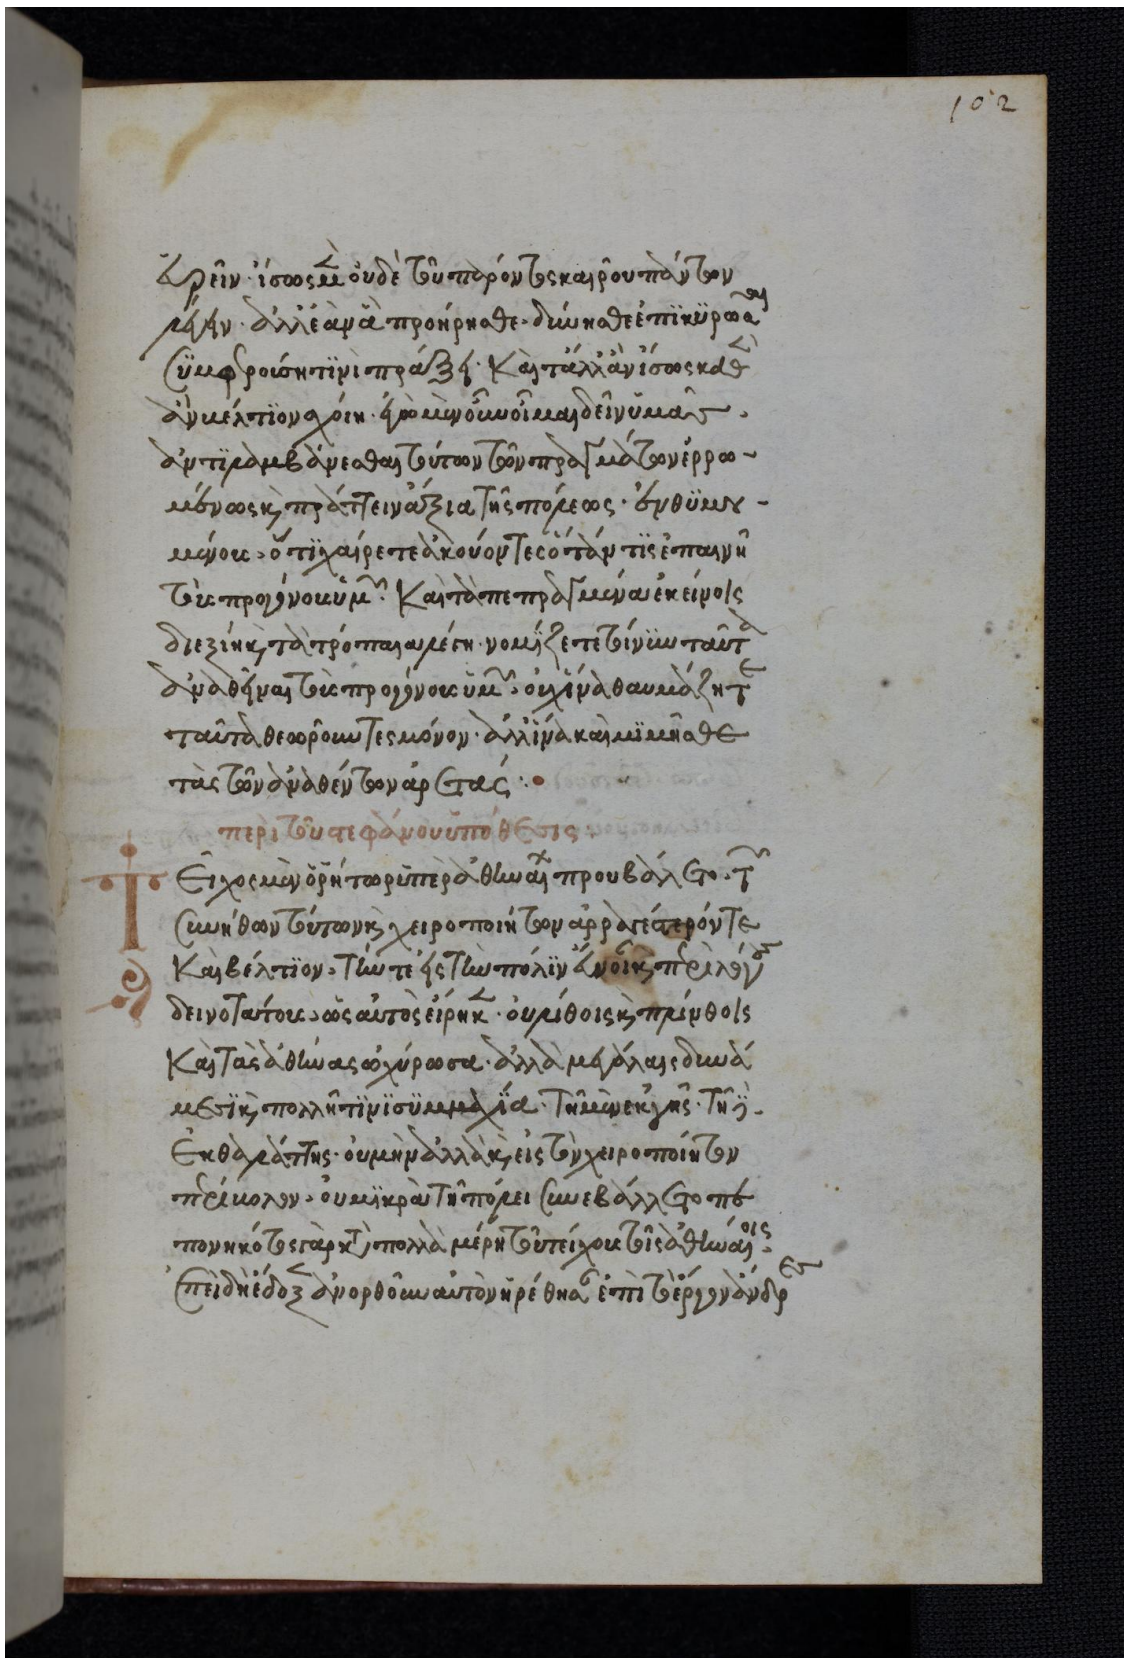 εὑρεῖν · ἴσως μὲν οὐδὲ τοῦ παρόντος καιροῦ πάντων
λέγειν · ἀλλ' ἐὰν ἃ προήρησθε · δυνησθε ἐπϊκϋρῶσαι
πράξει · Καὶ τἄλλ' ἂν ἴσως καθ
ἂν βέλτϊον σχοίη · ἐγὼ μὲν οὖν οἶμαι δεῖν ὑμᾶς ·
ἀντιλαμβάνεσθαι τούτων τῶν πραγμάτων ἐρρω-
μένως καὶ πράττειν ἄξια τῆς πόλεως · ἐνθϋμου-
μένους · ὅτϊ χαίρετε ἀκούοντες ὅτάν τϊς ἐπαινῆ
τοὺς προγόνους ὑμῶν · Καὶ τὰ πεπραγμένα ἐκείνοις
διεξίη καὶ τὰ τρόπαια λέγη · νομίζετε τοίνϋν ταῦτα
ἀναθεῖναι τοὺς προγόνους ὑμῶν · οὐχ ἵνα θαυμάζητε
ταῦτα θεωροῦντες μόνον · ἀλλ' ἵνα καὶ μϊμῆσθε
τὰς τῶν ἀναθέντων ἀρετάς :·
περὶ τοῦ στεφάνου ὑπόθεσις :
Τεῖχος μὲν ὁ ῥήτωρ ὑπὲρ ἀθηναίων προυβάλετο · τῶν
συνήθων τούτων καὶ χειροποιήτων ἀρραγέστερόν τε
Καὶ βέλτϊον · τήν τε εἰς τὴν πόλϊν εὔνοιαν καὶ περὶ λόγους
δεινοτάτους · ὡς αὐτὸς εἴρηκεν · οὐ λίθοις καὶ πλίνθοις
Καὶ τὰς ἀθήνας ὠχύρωσα · ἀλλὰ μεγάλαις δυνά
μεσϊ καὶ πολλῆ τϊνϊ σϋμμαχία · τῆ μὲν ἐκ γῆς · τῆ δὲ
ἐκ θαλάττης · οὐ μὴν ἀλλὰ καὶ εἰς τὸν χειροποίητον
περίβολον · οὐ μϊκρὰ τῆ πόλει συνεβάλλετο · πε
πονηκότος γὰρ κατὰ πολλὰ μέρη τοῦ τείχους τοῖς ἀθηναίοις ·
ἐπειδὴ ἔδοξεν ἀνορθοῦν αὐτὸν ἡρέθησαν ἐπὶ τὸ ἔργον ἄνδρες
102